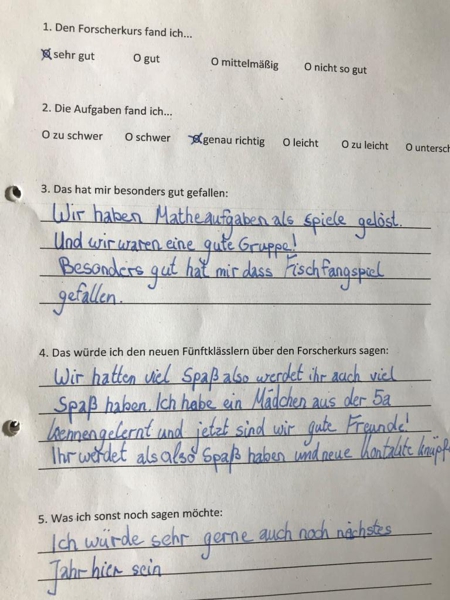 1. Den Forscherkurs fand ich...
sehr gut O gut O mittelmäßig O nicht so gut
2. Die Aufgaben fand ich...
O zu schwer O schwer genau richtig O leicht O zu leicht O untersch
3. Das hat mir besonders gut gefallen:
Wir haben Matheaufgaben als spiele gelöst.
Und wir waren eine gute Gruppe!
Besonders gut hat mir dass Fischfangspiel
gefallen.
4. Das würde ich den neuen Fünftklässlern über den Forscherkurs sagen:
Wir hatten viel Spaß also werdet ihr auch viel
Spaß haben. Ich habe ein Mädchen aus der 5a
kennengelernt und jetzt sind wir gute Freunde!
Ihr werdet als also Spaß haben und neue Kontakte knüpf
5. Was ich sonst noch sagen möchte:
Ich würde sehr gerne auch noch nächstes
Jahr hier sein